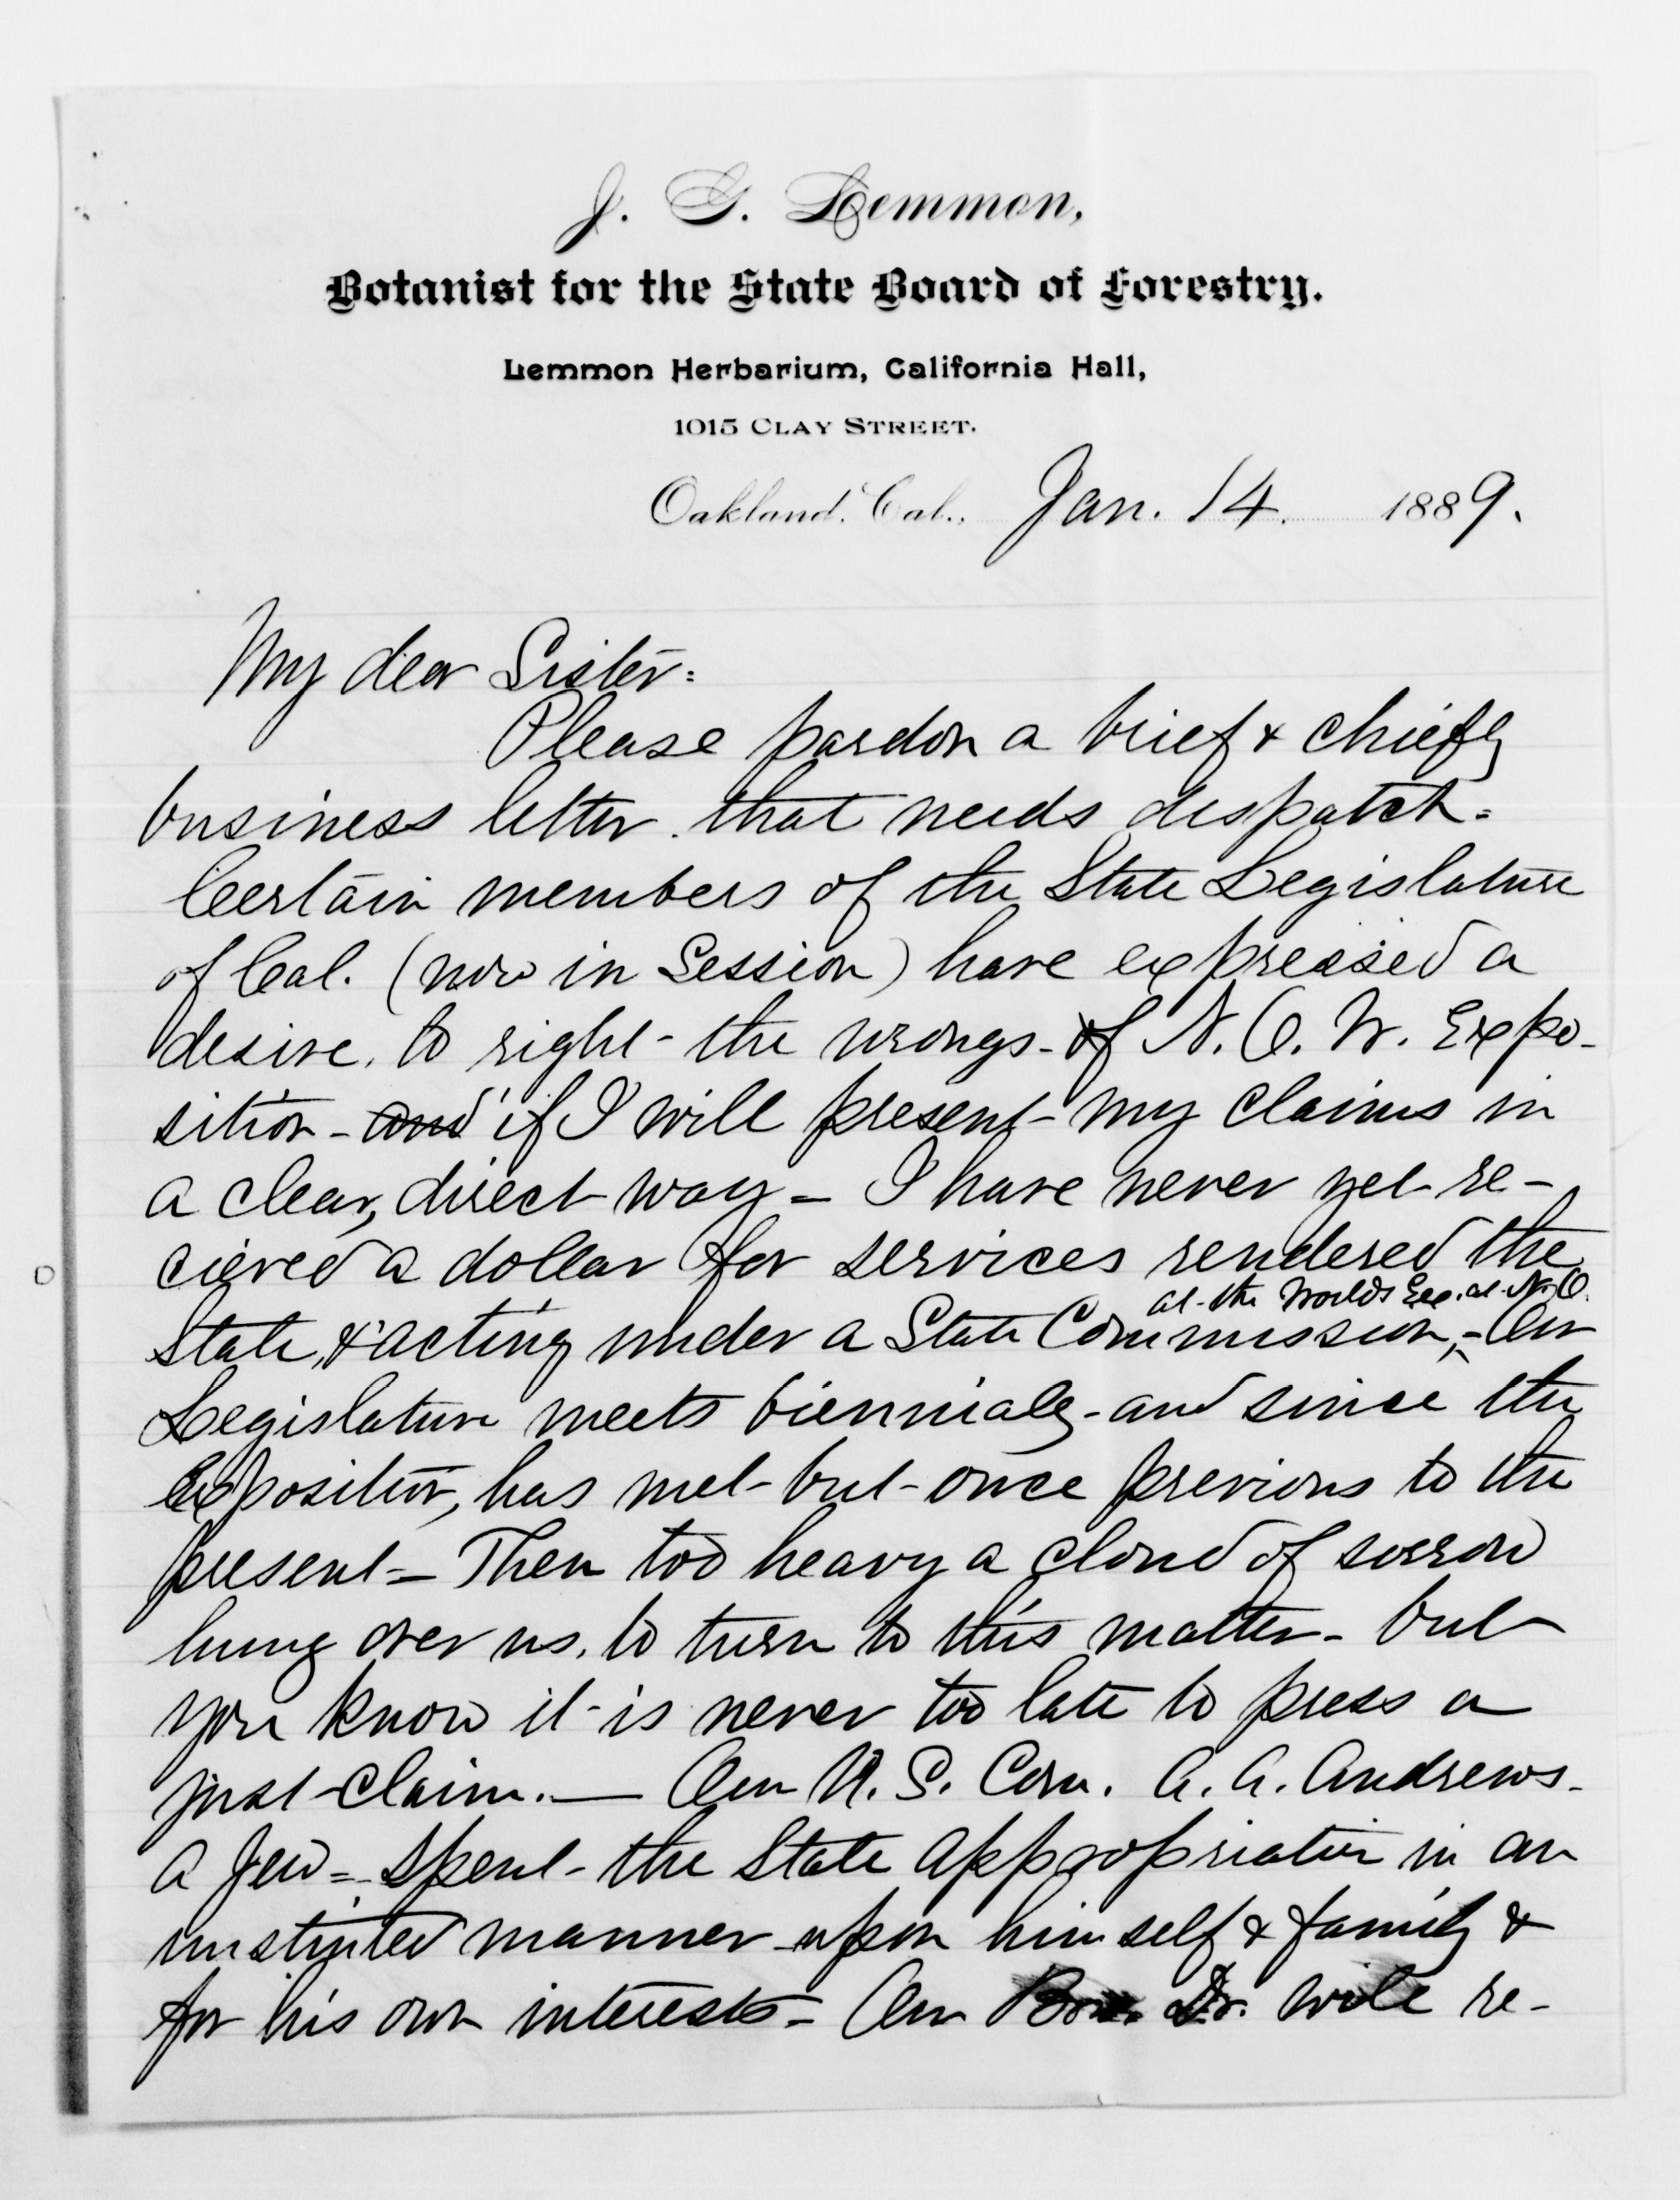 J. G. Lemmon,
Botanist for the State Board of Forestry.
Lemmon Herbarium, California Hall,
1015 Clay Street.
Oakland, Cal., Jan. 14. 1889.
My dear Sister:
Please pardon a brief & chiefly
business letter that needs dispatch.
Certain members of the State Legislature
of Cal. (now in Session) have expressed a
desire, to right the wrongs of N. O. W. Expo-
sition - and if I will present my claims in
a clear, direct way - I have never yet re-
cieved a dollar for services rendered the
at the Worlds Exp. at N. O.
State, & acting under a State Commission, - Our
Legislature meets biennialy - and since the
Exposition, has met but once previous to the
present - Then too heavy a cloud of sorrow
hung over us, to turn to this matter - but
you know it is never too late to press a
just claim. — Our U. S. Com. A. A. Andrews -
a Jew - spent the State appropriation in an
unstinted manner upon himself & family &
for his own interests - Our Dr. will re-